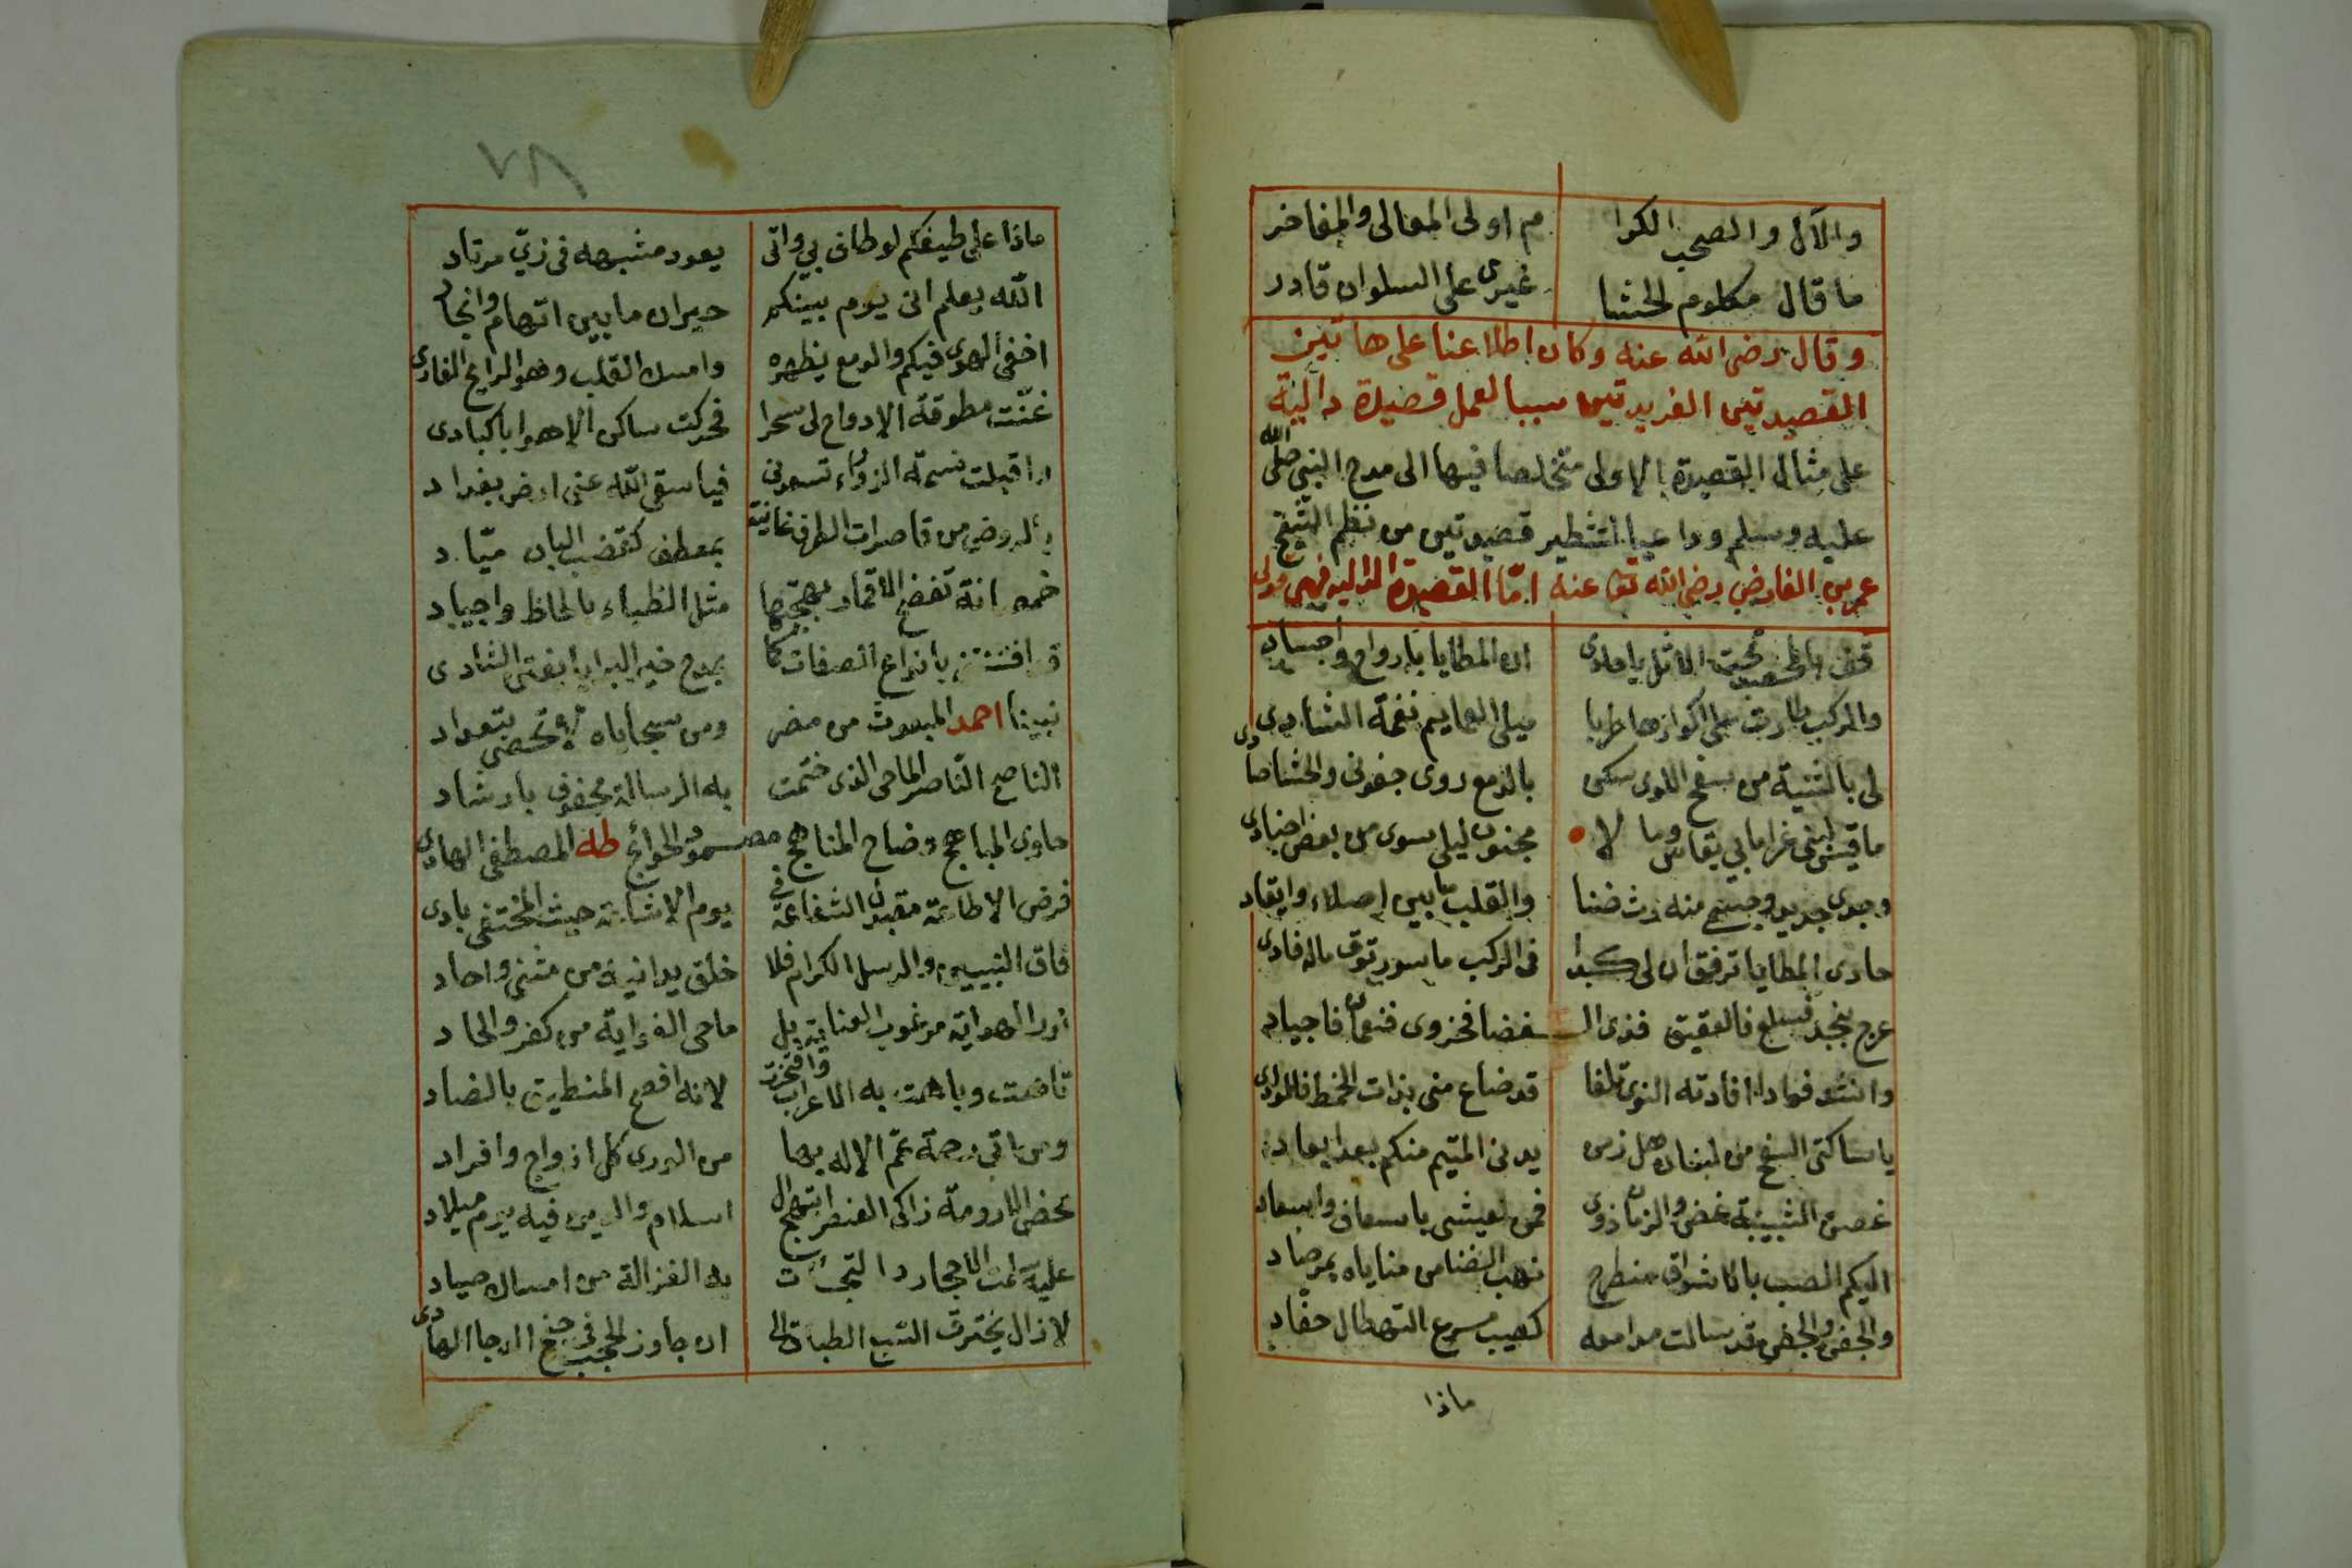 والآل والصحب الكرا م اولى المعالى والمفاخر
ما قال مكلوم الحشا غيرى على السلوان قادر
وقال رضى الله عنه وكان اطلاعنا على هاتين
القصيدتين الفريدتين سببا لعمل قصيدة دالية
على مثال القصيدة الاولى متخلصا فيها الى مدح النبى صلى الله
عليه وسلم وداعيا لتشطير قصيدتين من نظم الشيخ
عمر بن الفارض رضى الله تعا عنه امّا القصيدة الداليه فهى قولى
قف بالحمى تحت الاثل يا حادى ان المطايا بارواح واجساد
والركب طارت على اكوارها طربا ميلى العمايم نغمة الشادى
لى بالثنية من سفح اللوى سكن بالدمع روى جفونى والحشا صادى
ما قيس لبنى غراما بى يقاس وما لا مجنون ليلى سوى من بعض اجنادى
وجدى جديد وجسمى منه رث ضنا والقلب ما بين اصلاء وايقاد
حادى المطايا ترفق ان لى كبدا فى الركب ماسورة ماله فادى
عرج بنجد فسلع فالعقيق فذى الـ ـغضا فحزوى فنعمان فاجياد
وانشد فوادا افادته النوى تلفا قد ضاع منى بذات الخمط فالوادى
يا ساكنى السفح من لبنان هل زمن يدنى المتيم منكم بعد ابعاد
غصن الشبيبة غض والزمان ذوى فمن لعيشى باسعاف واسعاد
اليكم الصب بالاشواق منطرح نهب الضنا من مناياه بمرصاد
والجفن والجفن قد سالت مدامعه كصيب مسرع التهطال حفّاد
ماذا
٢٨
ماذا على طيفكم لو طاف بي واتى يعود مشبهه فى زيّ مرتاد
الله يعلم انى يوم بينكم حيران ما بين اتهام وانجاد
اخفى الهوى فيكم والدمع يظهره وامسك القلب وهو الرايح الغادى
غنّت مطوقة الادواح لى سحرا فحركت ساكن الاهوا باكبادى
اذا قبلت نسمة الزوراء تسعدنى فيا سقى الله عنى ارض بغداد
بالروض من قاصرات الطرف غانية بمعطف كقضيب البان ميّاد
خمصانة تفضح الاقمار بهجتها مثل الظباء بالحاظ واجياد
قد افتتنت بانواع الصفات كما بمدح خير البرايا يفتن الشادى
نبينا احمد المبعوث من مضر ومن سجاياه لا تحصى بتعداد
الناصح النّاصر الماحى الذى ختمت به الرسالة محفوف بارشاد
حاوى المباهج وضاح المناهج مصمود الحوائج طه المصطفى الهادى
فرض الاطاعة مقبول الشفاعة فى يوم الاشاعة حيث المختفى بادى
فاق النبيين والرسل الكرام فلا خلق يدانيه من مثنى واحاد
نور الهداية مرغوب العناية بل ماحى الغواية من كفر والحاد
تاهت وباهت به الاعراب وافتخرت لانه افصح المنطيق بالضاد
ومن اتى رحمة عمّ الاله بها من الورى كل ازواج وافراد
محض الارومة زاكى العنصر ابتهج ال اسلام والدين فيه يوم ميلاد
عليه سلمت الاحجار والتجأت به الغزالة من امساك صياد
لا زال يخترق السبع الطباق الى ان جاوز الحجب فى جنح الدجا الهادى